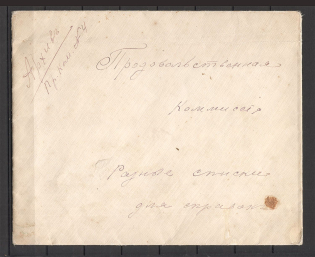 Архивъ
Продовольственная
Коммисія
Разные списки
для справок